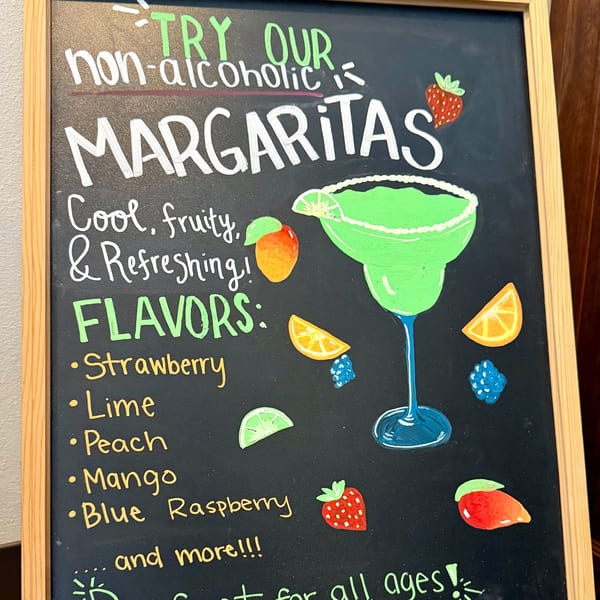 TRY OUR
non-alcoholic
MARGARiTAS
Cool, fruity,
& Refreshing!
FLAVORS:
• Strawberry
• Lime
• Peach
• Mango
• Blue Raspberry
.... and more!!!
for all ages!